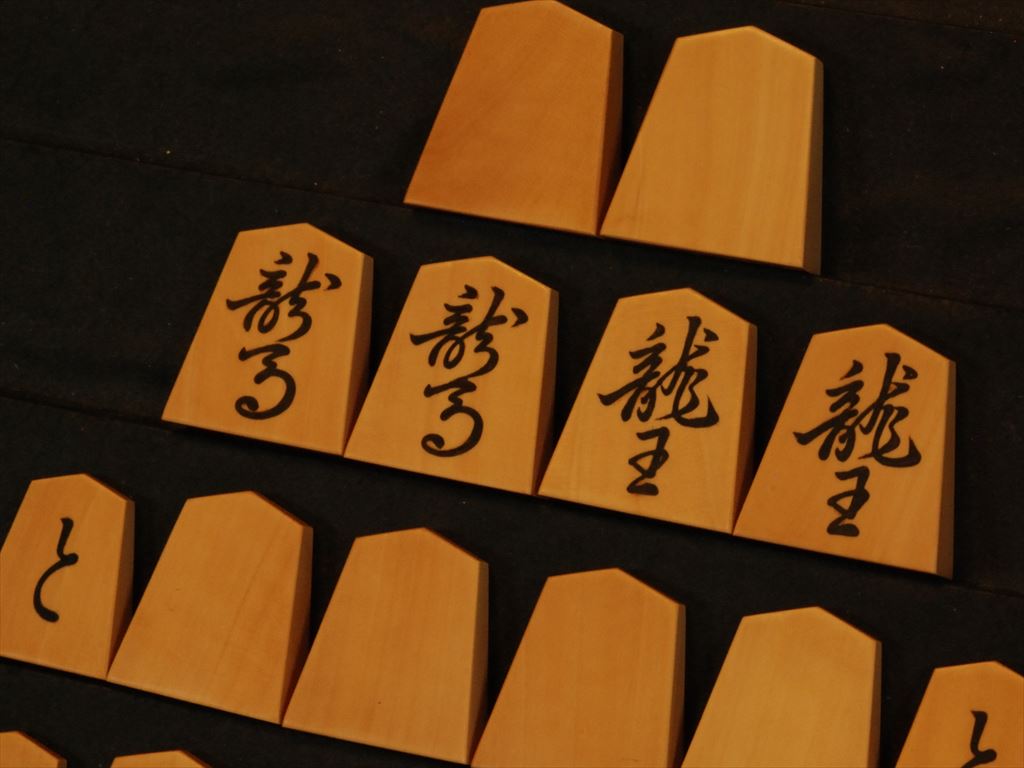 龍馬
龍馬
龍王
龍王
と
と